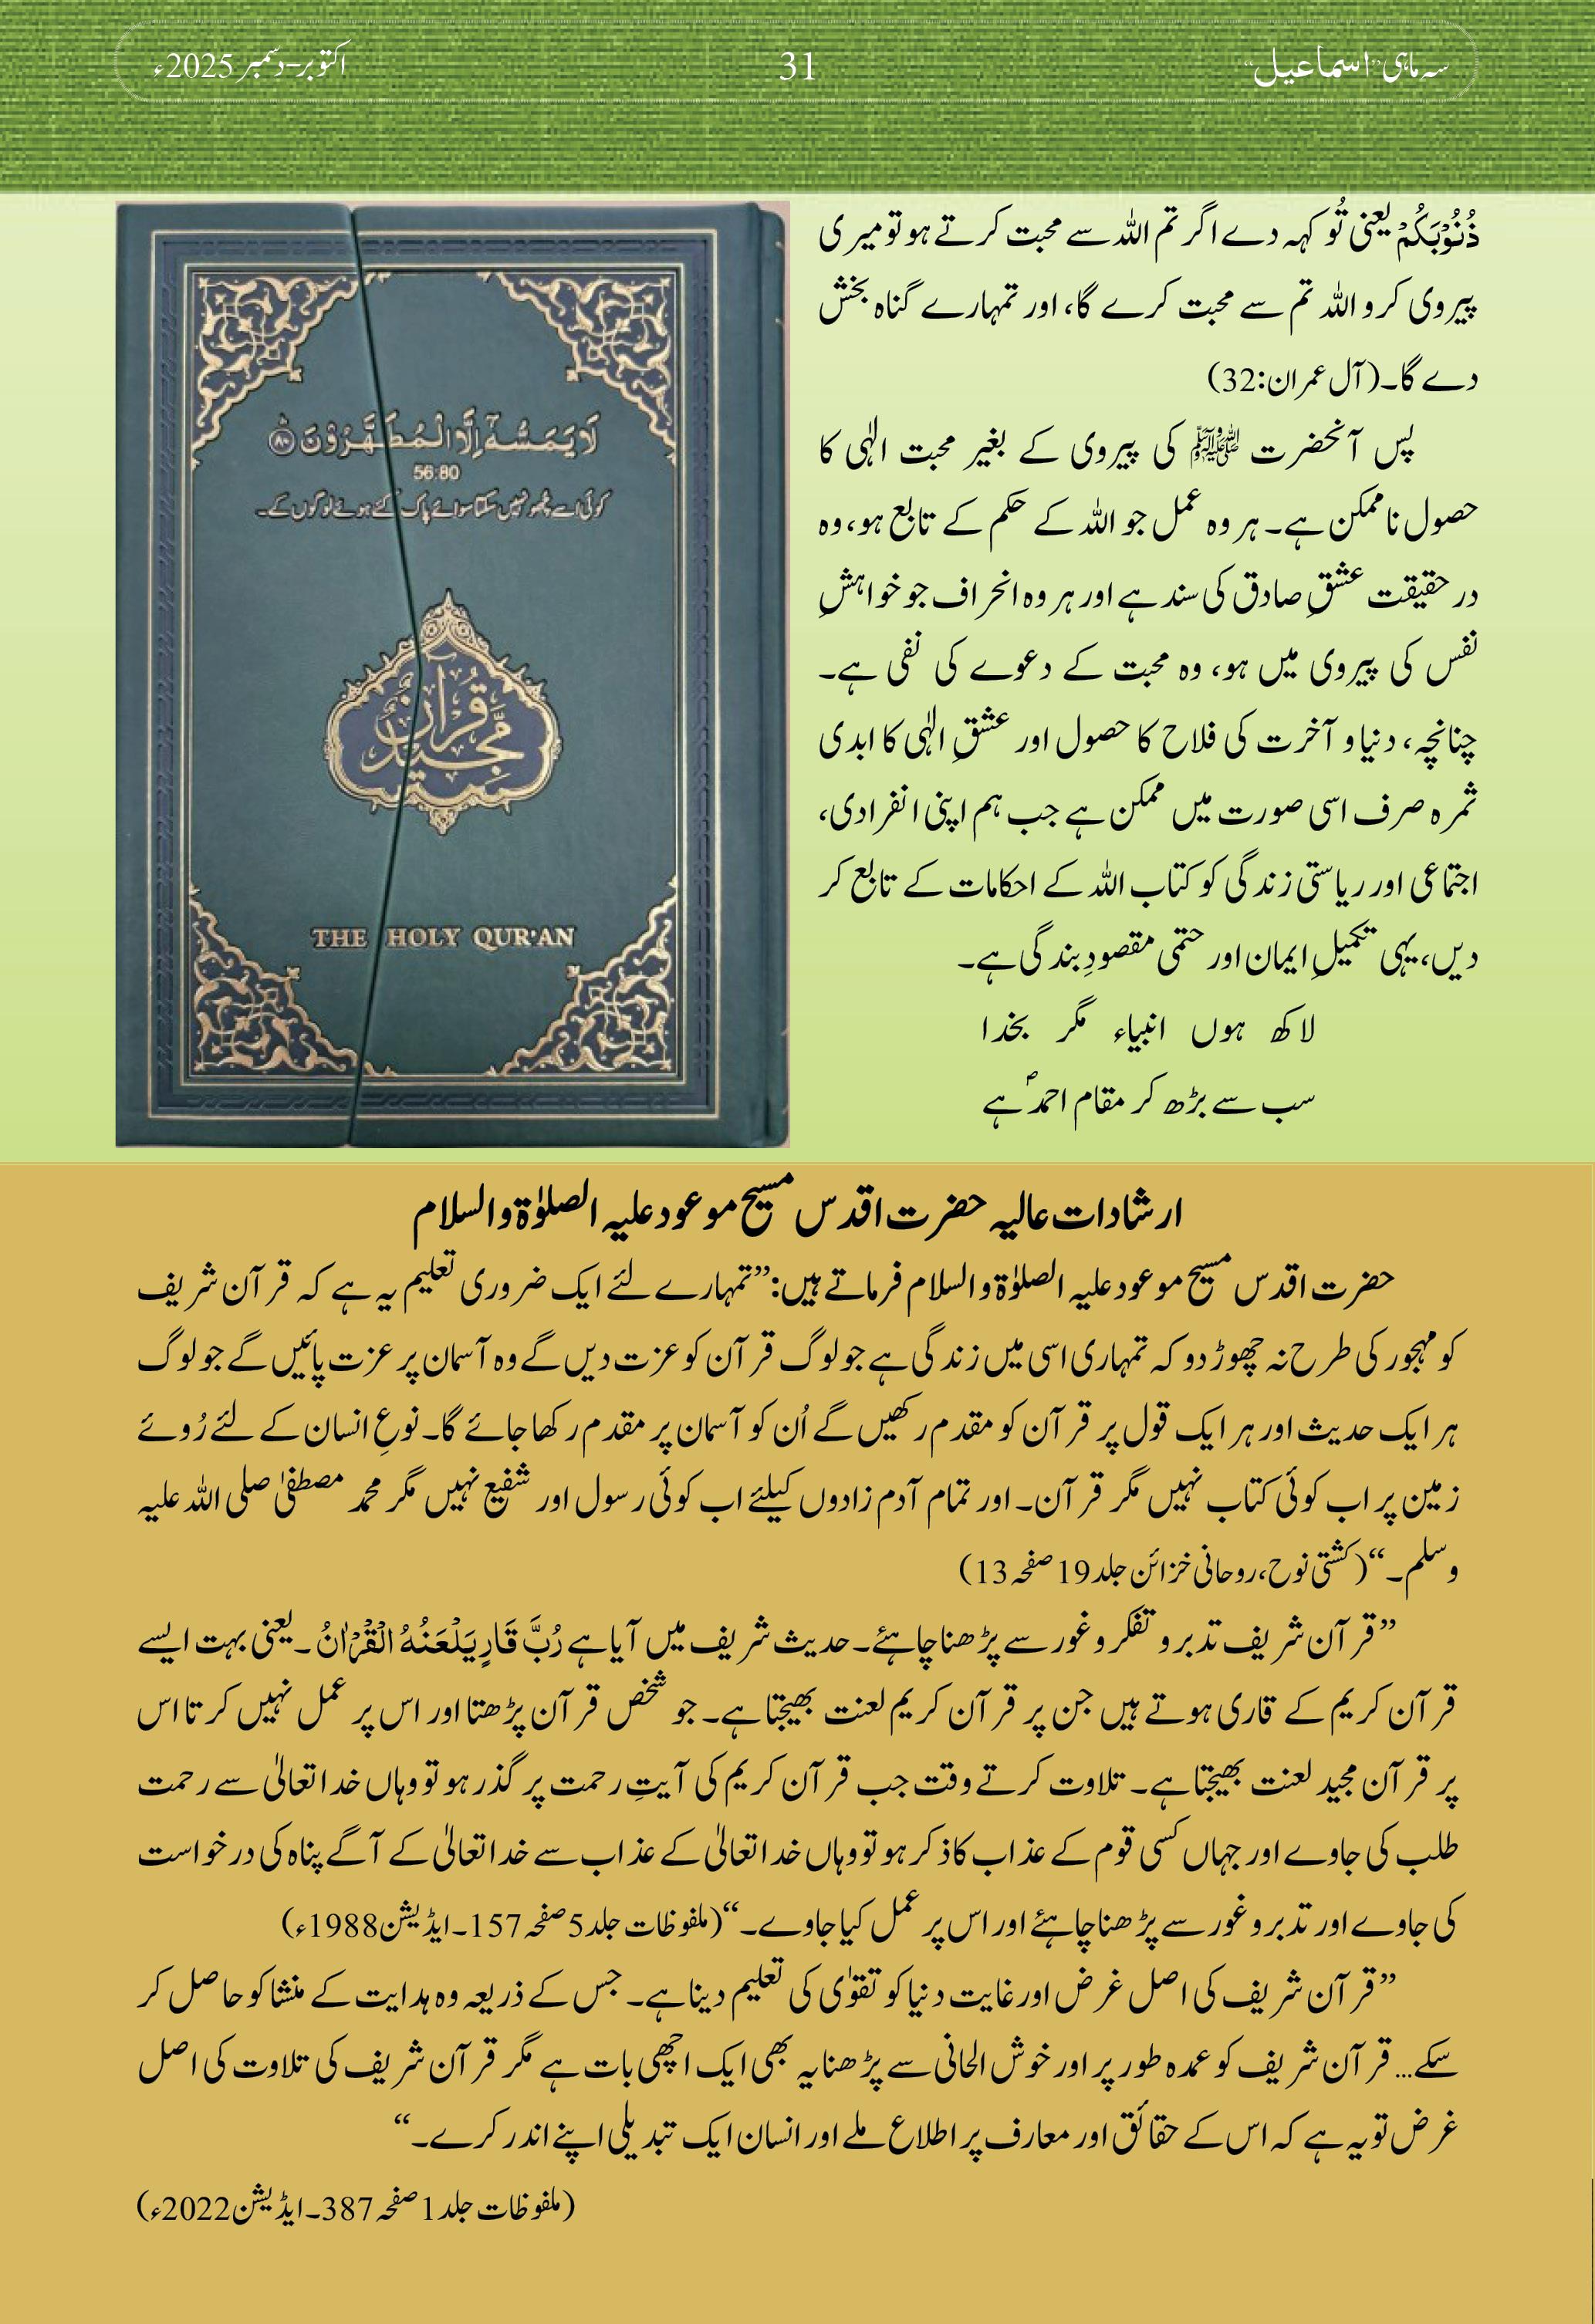 سہ ماہی ”اسماعیل“
31
اکتوبر-دسمبر 2025ء
ذُنُوۡبَکُمۡ یعنی تُو کہہ دے اگر تم اللہ سے محبت کرتے ہو تو میری
پیروی کرو اللہ تم سے محبت کرے گا، اور تمہارے گناہ بخش
دے گا۔ (آل عمران:32)
پس آنحضرت ﷺ کی پیروی کے بغیر محبت الٰہی کا
حصول ناممکن ہے۔ ہر وہ عمل جو اللہ کے حکم کے تابع ہو، وہ
در حقیقت عشقِ صادق کی سند ہے اور ہر وہ انحراف جو خواہشِ
نفس کی پیروی میں ہو، وہ محبت کے دعوے کی نفی ہے۔
چنانچہ، دنیا و آخرت کی فلاح کا حصول اور عشقِ الٰہی کا ابدی
ثمرہ صرف اسی صورت میں ممکن ہے جب ہم اپنی انفرادی،
اجتماعی اور ریاستی زندگی کو کتاب اللہ کے احکامات کے تابع کر
دیں، یہی تکمیلِ ایمان اور حتمی مقصودِ بندگی ہے۔
لاکھ ہوں انبیاء مگر بخدا
سب سے بڑھ کر مقام احمدؐ ہے
لَا یَمَسُّہٗۤ اِلَّا الۡمُطَہَّرُوۡنَ ﴿۸۰﴾
56:80
کوئی اسے چُھو نہیں سکتا سوائے پاک کئے ہوئے لوگوں کے۔
قُرآن مَّجِیۡدٌ
THE HOLY QUR'AN
ارشادات عالیہ حضرت اقدس مسیح موعود علیہ الصلوٰۃ والسلام
حضرت اقدس مسیح موعود علیہ الصلوٰۃ والسلام فرماتے ہیں: ”تمہارے لئے ایک ضروری تعلیم یہ ہے کہ قرآن شریف
کو مہجور کی طرح نہ چھوڑ دو کہ تمہاری اسی میں زندگی ہے جو لوگ قرآن کو عزت دیں گے وہ آسمان پر عزت پائیں گے جو لوگ
ہر ایک حدیث اور ہر ایک قول پر قرآن کو مقدم رکھیں گے اُن کو آسمان پر مقدم رکھا جائے گا۔ نوعِ انسان کے لئے رُوئے
زمین پر اب کوئی کتاب نہیں مگر قرآن۔ اور تمام آدم زادوں کیلئے اب کوئی رسول اور شفیع نہیں مگر محمد مصطفیٰ صلی اللہ علیہ
وسلم۔“ (کشتی نوح، روحانی خزائن جلد 19 صفحہ 13)
”قرآن شریف تدبر و تفکر و غور سے پڑھنا چاہئے۔ حدیث شریف میں آیا ہے رُبَّ قَارٍ یَلْعَنُہُ الْقُرْاٰنُ۔ یعنی بہت ایسے
قرآن کریم کے قاری ہوتے ہیں جن پر قرآن کریم لعنت بھیجتا ہے۔ جو شخص قرآن پڑھتا اور اس پر عمل نہیں کرتا اس
پر قرآن مجید لعنت بھیجتا ہے۔ تلاوت کرتے وقت جب قرآن کریم کی آیتِ رحمت پر گذر ہو تو وہاں خدا تعالیٰ سے رحمت
طلب کی جاوے اور جہاں کسی قوم کے عذاب کا ذکر ہو تو وہاں خدا تعالیٰ کے عذاب سے خدا تعالیٰ کے آگے پناہ کی درخواست
کی جاوے اور تدبر و غور سے پڑھنا چاہئے اور اس پر عمل کیا جاوے۔“ (ملفوظات جلد 5 صفحہ 157۔ ایڈیشن 1988ء)
”قرآن شریف کی اصل غرض اور غایت دنیا کو تقوٰی کی تعلیم دینا ہے۔ جس کے ذریعہ وہ ہدایت کے منشا کو حاصل کر
سکے... قرآن شریف کو عمدہ طور پر اور خوش الحانی سے پڑھنا یہ بھی ایک اچھی بات ہے مگر قرآن شریف کی تلاوت کی اصل
غرض تو یہ ہے کہ اس کے حقائق اور معارف پر اطلاع ملے اور انسان ایک تبدیلی اپنے اندر کرے۔“
(ملفوظات جلد 1 صفحہ 387۔ ایڈیشن 2022ء)